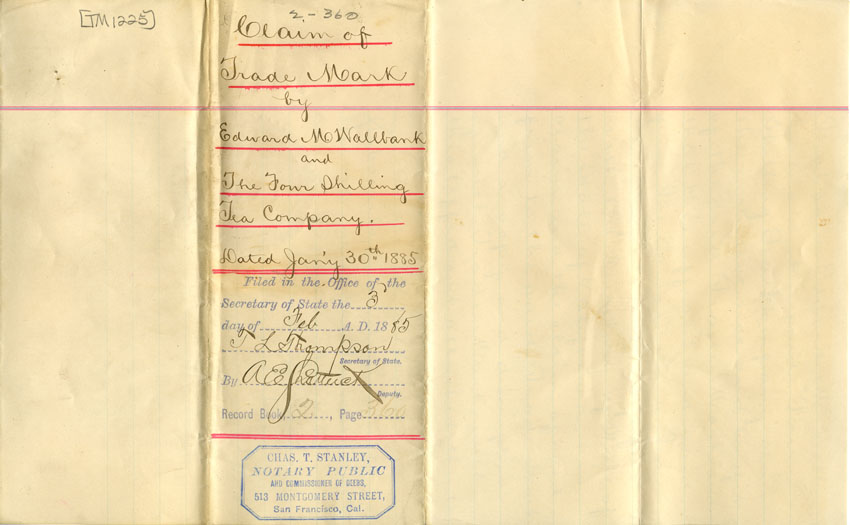 [TM1225]
2-360
Claim of
Trade Mark
by
Edward M Wallbank
and
The Four Shilling
Tea Company.
Dated Jan'y 30th 1885
Filed in the Office of the
Secretary of State the 3
day of Feb A. D. 1885
T L Thompson
Secretary of State.
By A E Shattuck
Deputy.
Record Book 2, Page 360
CHAS. T. STANLEY,
NOTARY PUBLIC
AND COMMISSIONER OF DEEDS,
513 MONTGOMERY STREET,
San Francisco, Cal.